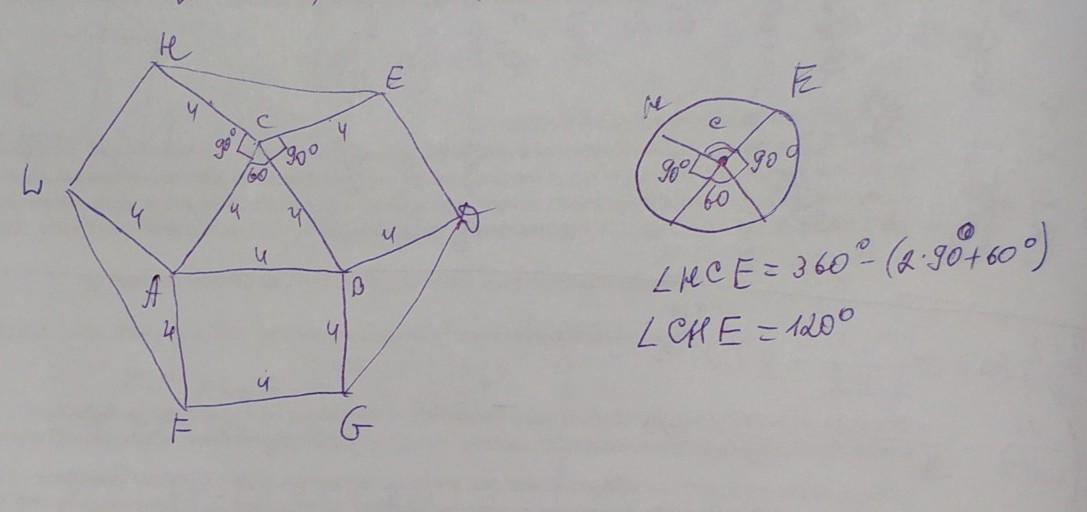 H
E
4
C
4
90°
90°
60
L
4
4
4
4
D
4
A
B
4
4
4
F
G
H
E
C
90°
90°
60
∠HCE = 360° - (2·90°+60°)
∠CHE = 120°